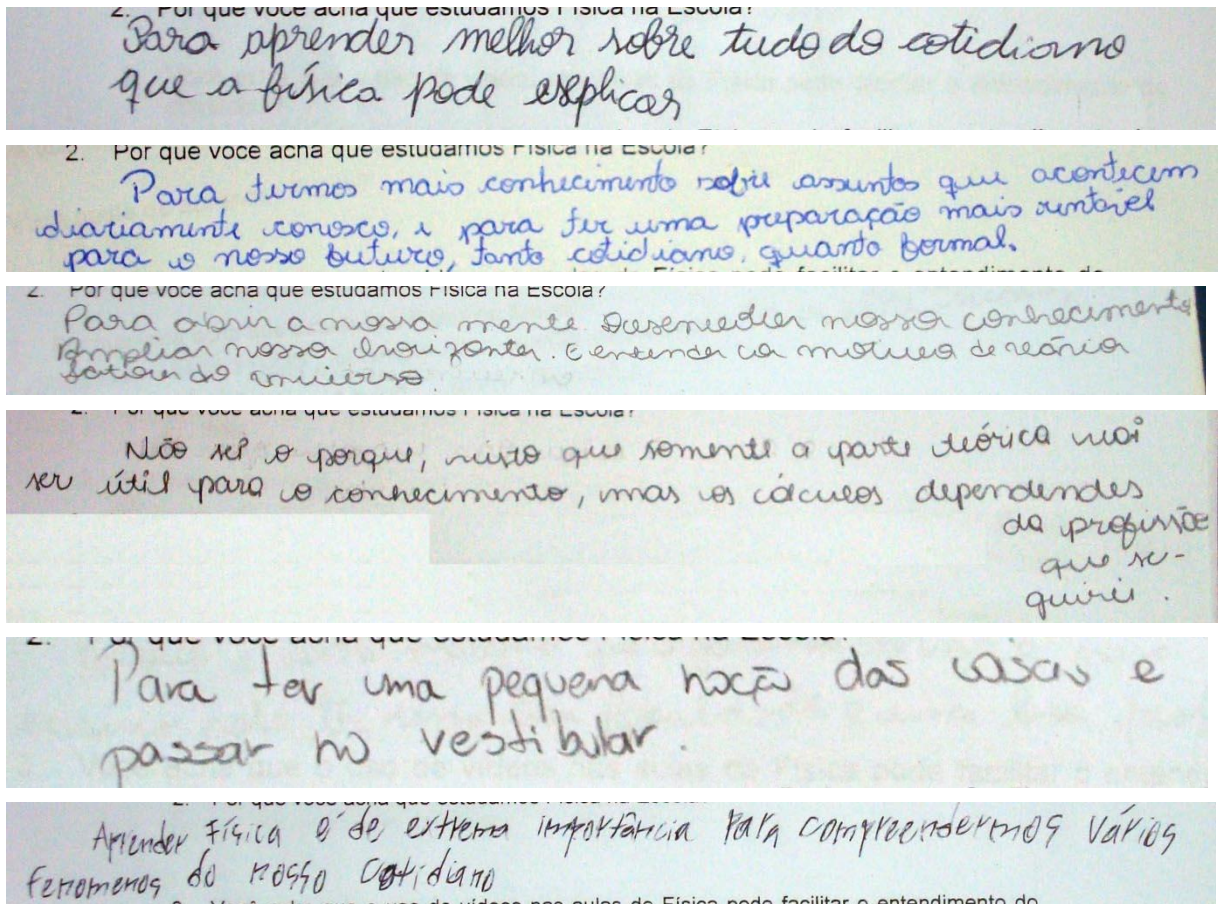 2. Por que você acha que estudamos Física na Escola?
Para aprender melhor sobre tudo do cotidiano
que a física pode explicar
2. Por que você acha que estudamos Física na Escola?
Para termos mais conhecimento sobre assuntos que acontecem
diariamente conosco, e para ter uma preparação mais rentável
para o nosso futuro, tanto cotidiano, quanto formal.
2. Por que você acha que estudamos Física na Escola?
Para abrir a nossa mente. nosso conhecimento
Ampliar nosso horizonte. E entender
do universo.
2. Por que você acha que estudamos Física na Escola?
Não sei o porque, visto que somente a parte teórica vai
ser útil para o conhecimento, mas os cálculos dependendes
da profissão
que se-
guirei.
2. Por que você acha que estudamos Física na Escola?
Para ter uma pequena noção das coisas e
passar no vestibular.
2. Por que você acha que estudamos Física na Escola?
Aprender Física é de extrema importância para compreendermos vários
fenomenos do nosso cotidiano
o uso de vídeos nas aulas de Física pode facilitar o entendimento do